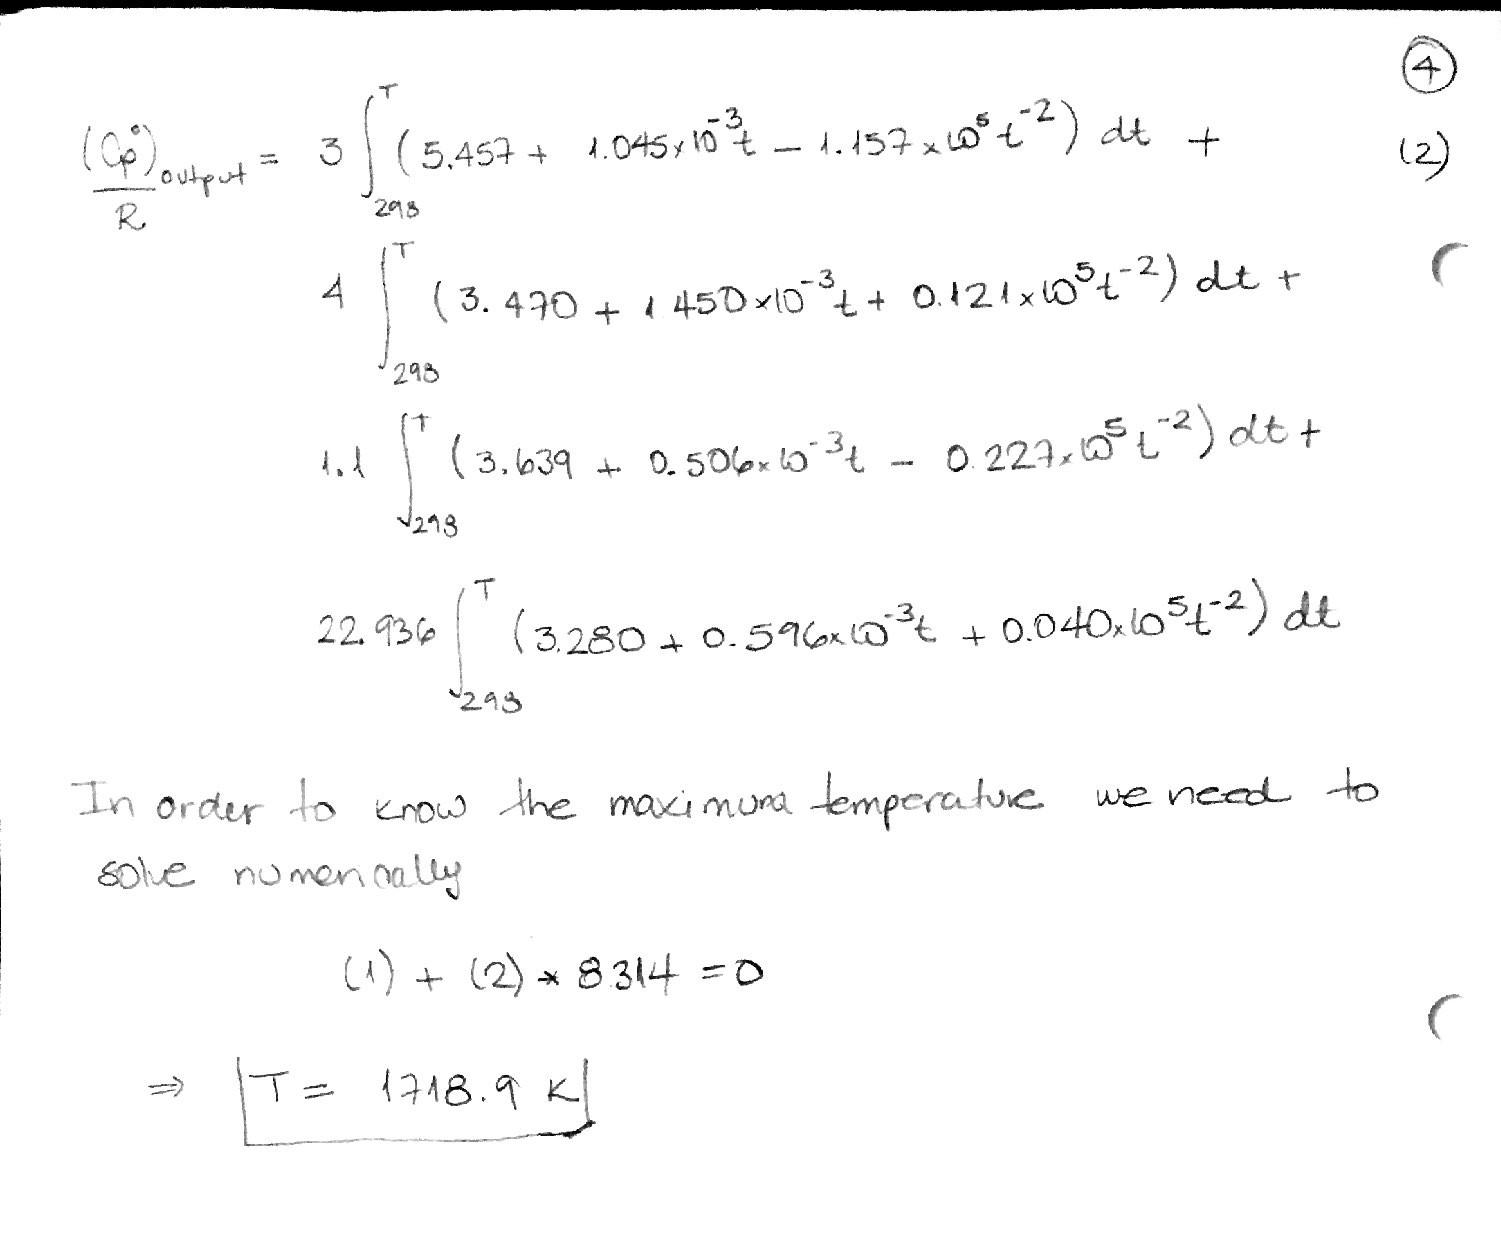 ④
(Cp°)output/R = 3 ∫₂₉₈ᵀ (5.457 + 1.045×10⁻³t − 1.157×10⁵t⁻²) dt + (2)
4 ∫₂₉₈ᵀ (3.470 + 1.450×10⁻³t + 0.121×10⁵t⁻²) dt +
1.1 ∫₂₉₈ᵀ (3.639 + 0.506×10⁻³t − 0.227×10⁵t⁻²) dt +
22.936 ∫₂₉₈ᵀ (3.280 + 0.596×10⁻³t + 0.040×10⁵t⁻²) dt
In order to know the maximum temperature we need to
solve numerically
(1) + (2) * 8.314 = 0
⇒ T = 1718.9 K